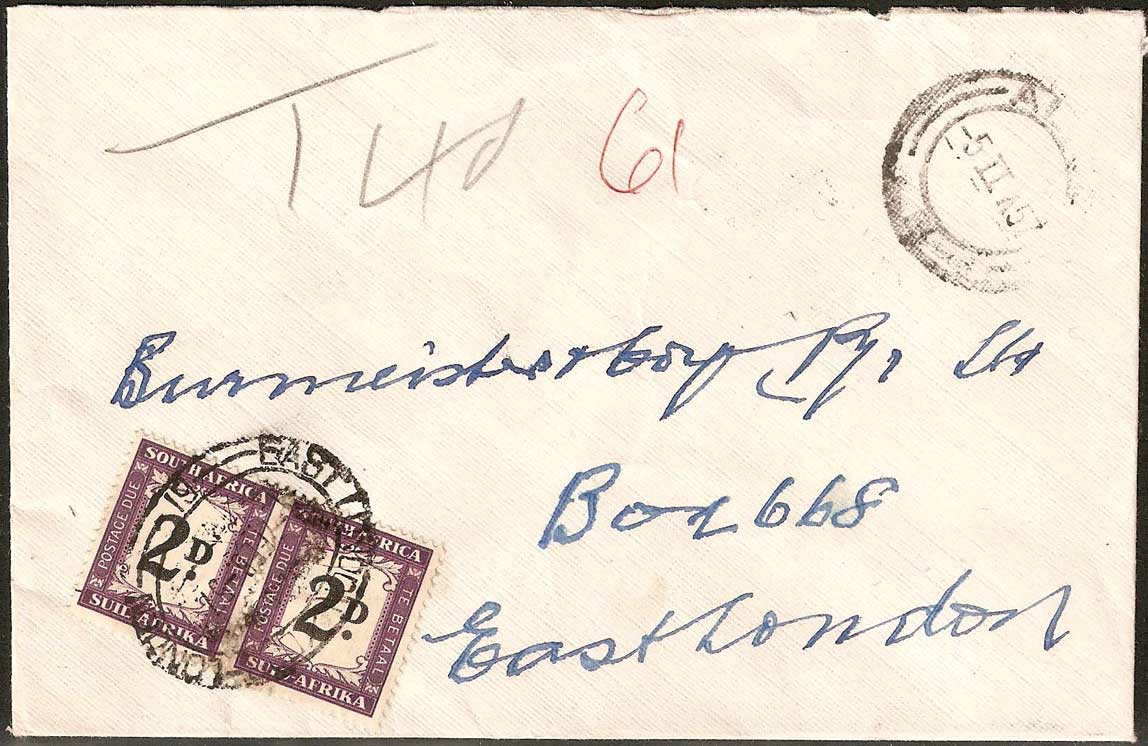 T 4d 61
-5 II 57
Burmeister & Coy Pty Ltd
Box 668
East London
SOUTH AFRICA
POSTAGE DUE
2D.
TE BETAAL
SUID-AFRIKA
SOUTH AFRICA
POSTAGE DUE
2D.
TE BETAAL
SUID-AFRIKA
EAST LONDON